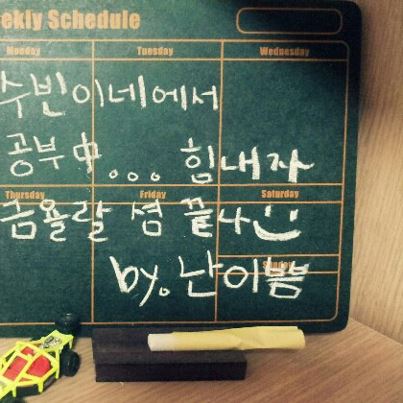 ekly Schedule
Monday Tuesday Wednesday
수빈이네에서
공부中... 힘내자
Thursday Friday Saturday
금욜랄 셤 끝나 :)
Sunday
by. 난이쁨